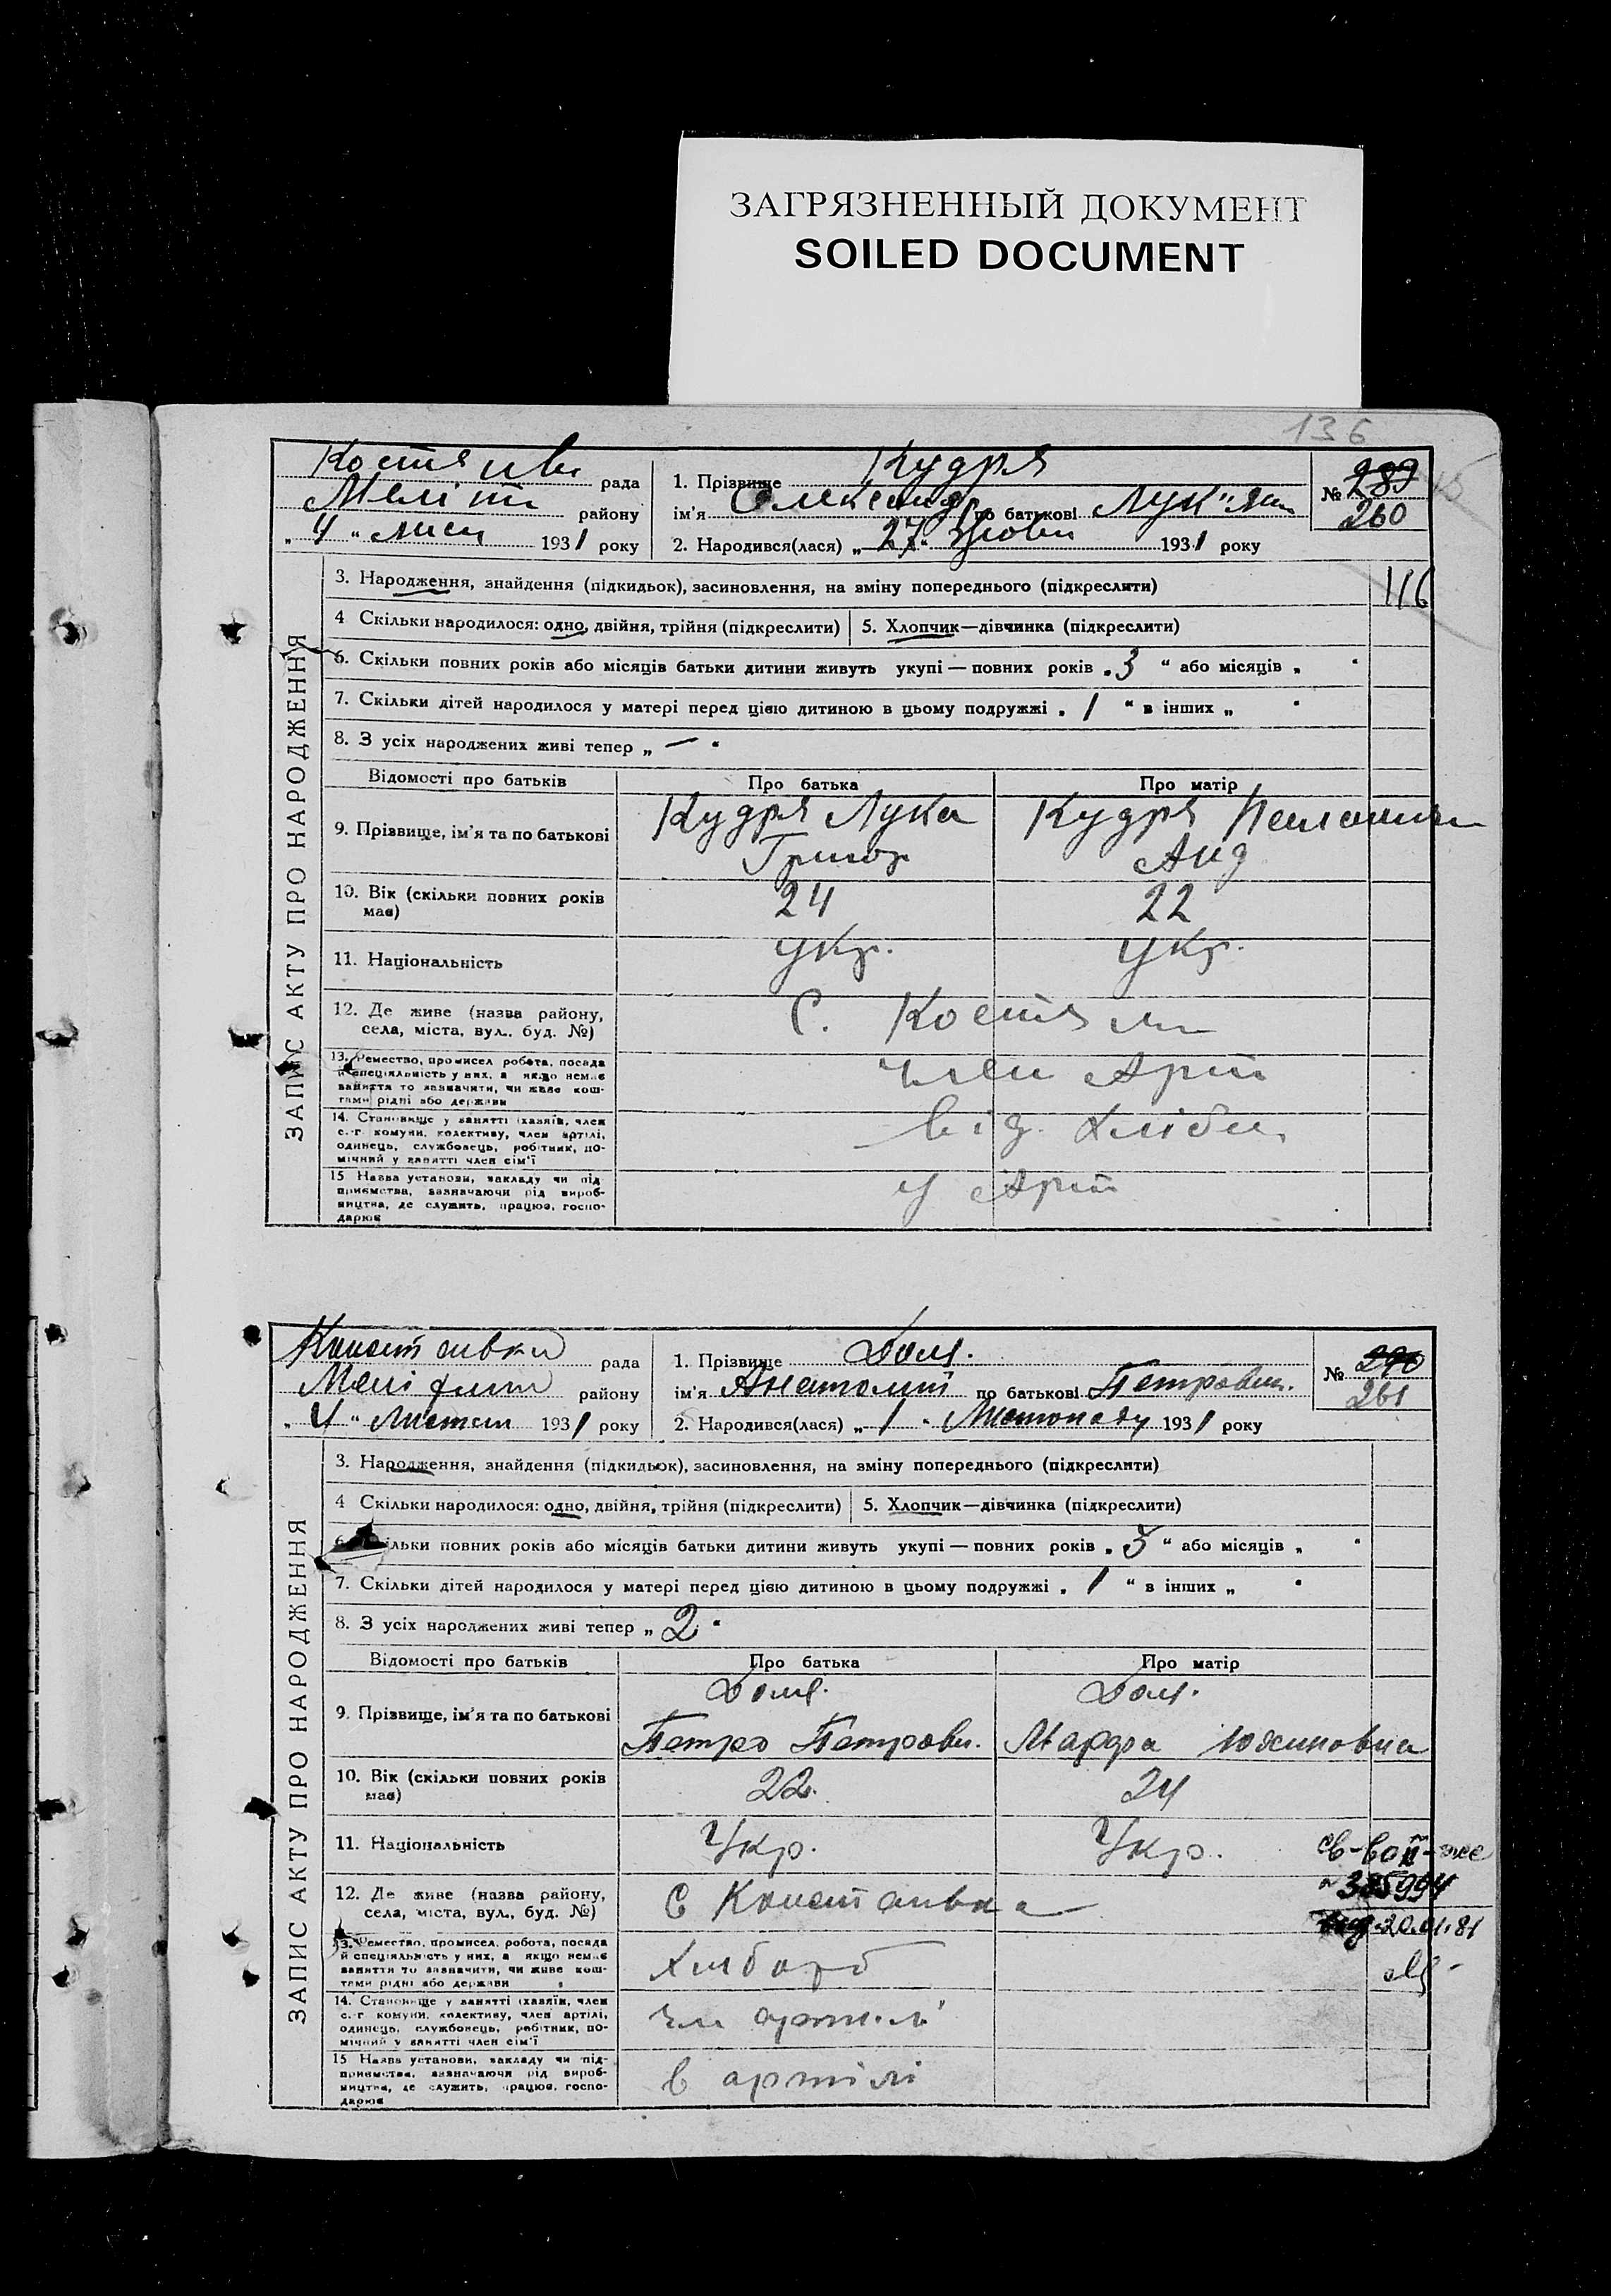 ЗАГРЯЗНЕННЫЙ ДОКУМЕНТ
SOILED DOCUMENT
136
рада
району
„ 4 “ 1931 року
1. Прізвище Кудря
ім'я Олександр по батькові Лук"ян
2. Народився(лася) „ 27 “ Жовт 1931 року
№ 289
260
116
ЗАПИС АКТУ ПРО НАРОДЖЕННЯ
3. Народження, знайдення (підкидьок), засиновлення, на зміну попереднього (підкреслити)
4 Скільки народилося: одно, двійня, трійня (підкреслити) 5. Хлопчик—дівчинка (підкреслити)
6. Скільки повних років або місяців батьки дитини живуть укупі — повних років „ 3 “ або місяців „
7. Скільки дітей народилося у матері перед цією дитиною в цьому подружжі „ 1 “ в інших „
8. З усіх народжених живі тепер „ — “
Відомості про батьків Про батька Про матір
9. Прізвище, ім'я та по батькові Кудря Лука Кудря
Григор Анд
10. Вік (скільки повних років має) 24 22
11. Національність укр. укр.
12. Де живе (назва району,
села, міста, вул., буд. №) С.
13. Ремество, промисел робота, посада
й спеціяльність у них, а якщо немає
заняття то зазначити, чи живе кош-
тами рідні або держави член Арт
14. Становище у занятті (хазяїн, член
с.-г комуни, колективу, член артілі,
одинець, службовець, робітник, по-
мічний у занятті член сім'ї
15 Назва установи, закладу чи під-
приємства, зазначаючи рід вироб-
ництва, де служить, працює, госпо-
дарює у Арт
рада
району
„ 4 “ 1931 року
1. Прізвище
ім'я Анатолій по батькові Петрович.
2. Народився(лася) „ 1 “ Листопаду 1931 року
№ 290
261
ЗАПИС АКТУ ПРО НАРОДЖЕННЯ
3. Народження, знайдення (підкидьок), засиновлення, на зміну попереднього (підкреслити)
4 Скільки народилося: одно, двійня, трійня (підкреслити) 5. Хлопчик—дівчинка (підкреслити)
6. Скільки повних років або місяців батьки дитини живуть укупі — повних років „ 3 “ або місяців „
7. Скільки дітей народилося у матері перед цією дитиною в цьому подружжі „ 1 “ в інших „
8. З усіх народжених живі тепер „ 2 “
Відомості про батьків Про батька Про матір
9. Прізвище, ім'я та по батькові
Петро Петрович. Марфа
10. Вік (скільки повних років має) 22. 24
11. Національність Укр. Укр.
12. Де живе (назва району,
села, міста, вул., буд. №) С
13. Ремество, промисел, робота, посада
й спеціяльність у них, а якщо немає
заняття то зазначити, чи живе кош-
тами рідні або держави Хлібороб
14. Становище у занятті (хазяїн, член
с.-г комуни, колективу, член артілі,
одинець, службовець, робітник, по-
мічний у занятті член сім'ї чл артілі
15 Назва установи, закладу чи під-
приємства, зазначаючи рід вироб-
ництва, де служить, працює, госпо-
дарює в артілі
20.01.81